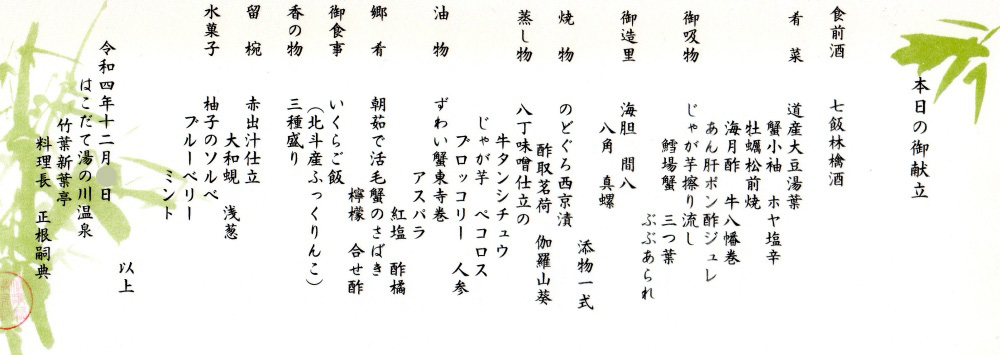 本日の御献立
食前酒 七飯林檎酒
肴菜 道産大豆湯葉
蟹小袖 ホヤ塩辛
牡蠣松前焼
海月酢 牛八幡巻
あん肝ポン酢ジュレ
御吸物 じゃが芋擦り流し
鱈場蟹 三つ葉
ぶぶあられ
御造里 海胆 間八
八角 真螺
添物一式
焼物 のどぐろ西京漬
酢取茗荷 伽羅山葵
蒸し物 八丁味噌仕立の
牛タンシチュウ
じゃが芋 ペコロス
ブロッコリー 人参
油物 ずわい蟹東寺巻
アスパラ
紅塩 酢橘
郷肴 朝茹で活毛蟹のさばき
檸檬 合せ酢
御食事 いくらご飯
(北斗産ふっくりんこ)
香の物 三種盛り
留椀 赤出汁仕立
大和蜆 浅葱
水菓子 柚子のソルベ
ブルーベリー
ミント
以上
令和四年十二月 日
はこだて湯の川温泉
竹葉新葉亭
料理長 正根嗣典